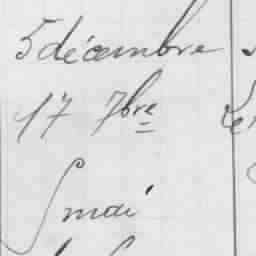 5 décembre
17 7bre
5 mai